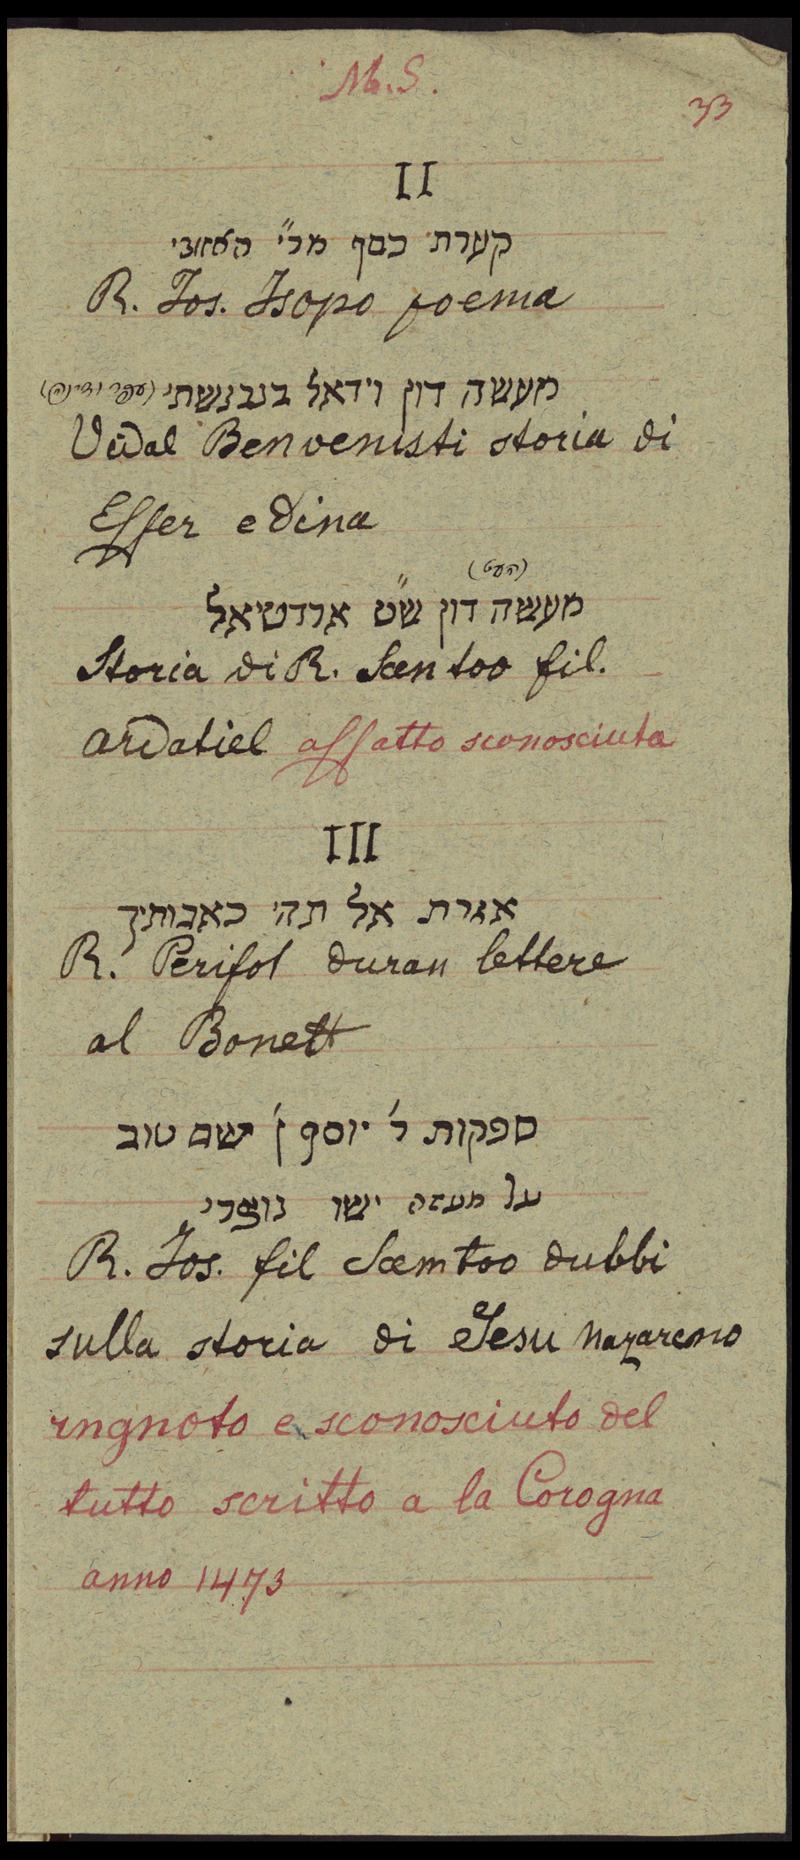 M.S.
33
II
קערת כסף מר״י האזובי
R. Jos. Isopo poema
מעשה דון וידאל בנבנשתי (עפר ודינה)
Vidal Benvenisti storia di
Effer e Dina
(העט)
מעשה דון ש״ט ארדטיאל
Storia di R. Scentoo fil.
Ardatiel affatto sconosciuta
III
אגרת אל תהי כאבותיך
R. Perifot duran lettere
al Bonett
ספקות ר׳ יוסף ן׳ ישם טוב
על מעשה ישו נוצרי
R. Jos. fil Scemtoo dubbi
sulla storia di Jesu Nazareno
ingnoto e sconosciuto del
tutto scritto a la Corogna
anno 1473